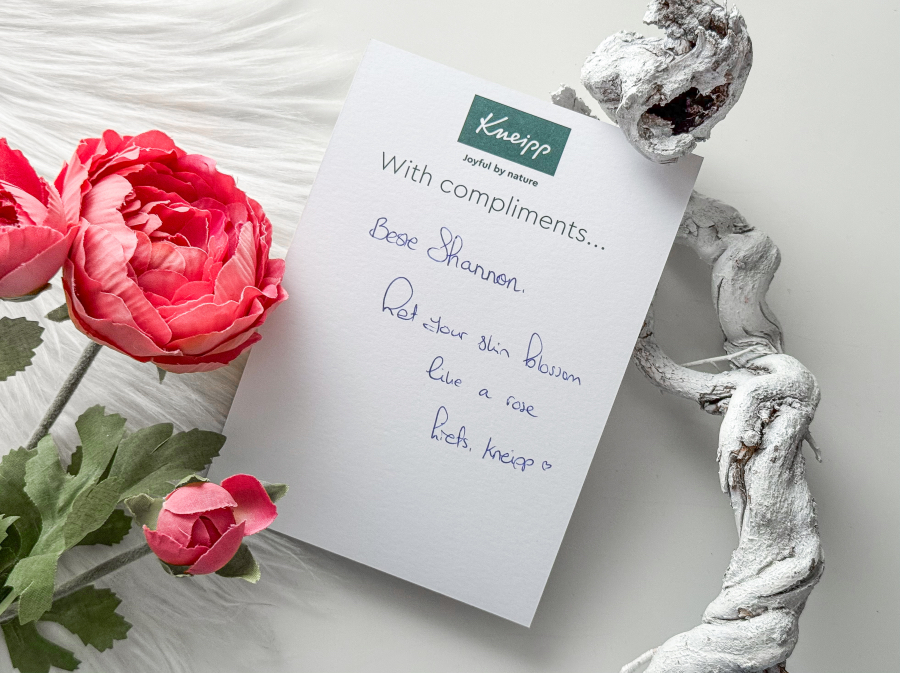 Kneipp
Joyful by nature
With compliments...
Beste Shannon,
Let your skin blossom
like a rose
liefs, Kneipp ♡